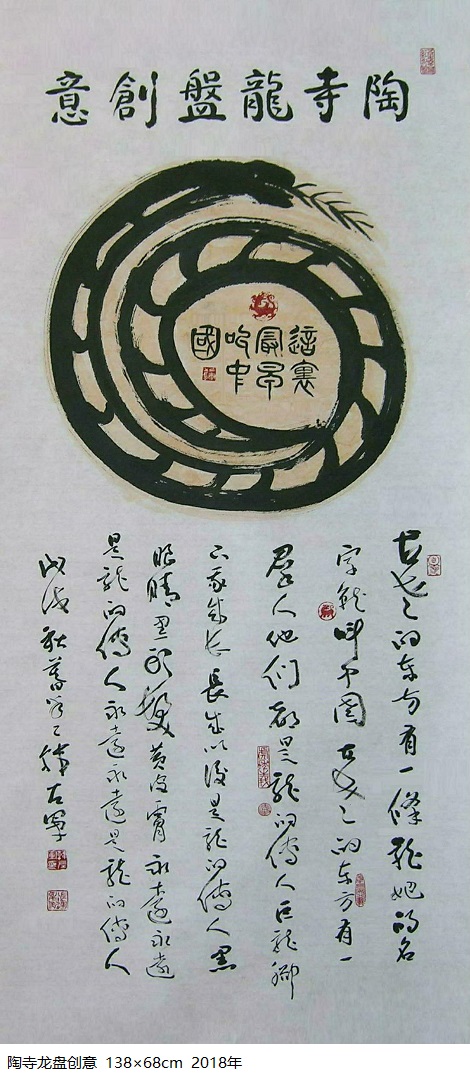 陶寺龍盤創意
這裏
最早
叫中
國
古老的东方有一條龍她的名
字就叫中國古老的东方有一
群人他们都是龍的傳人巨龍腳
下我成长長成以後是龍的傳人黑
眼睛黑头髮黄皮膚永遠永遠
是龍的傳人永遠永遠是龍的傳人
戊戌秋
陶寺龙盘创意 138×68cm 2018年